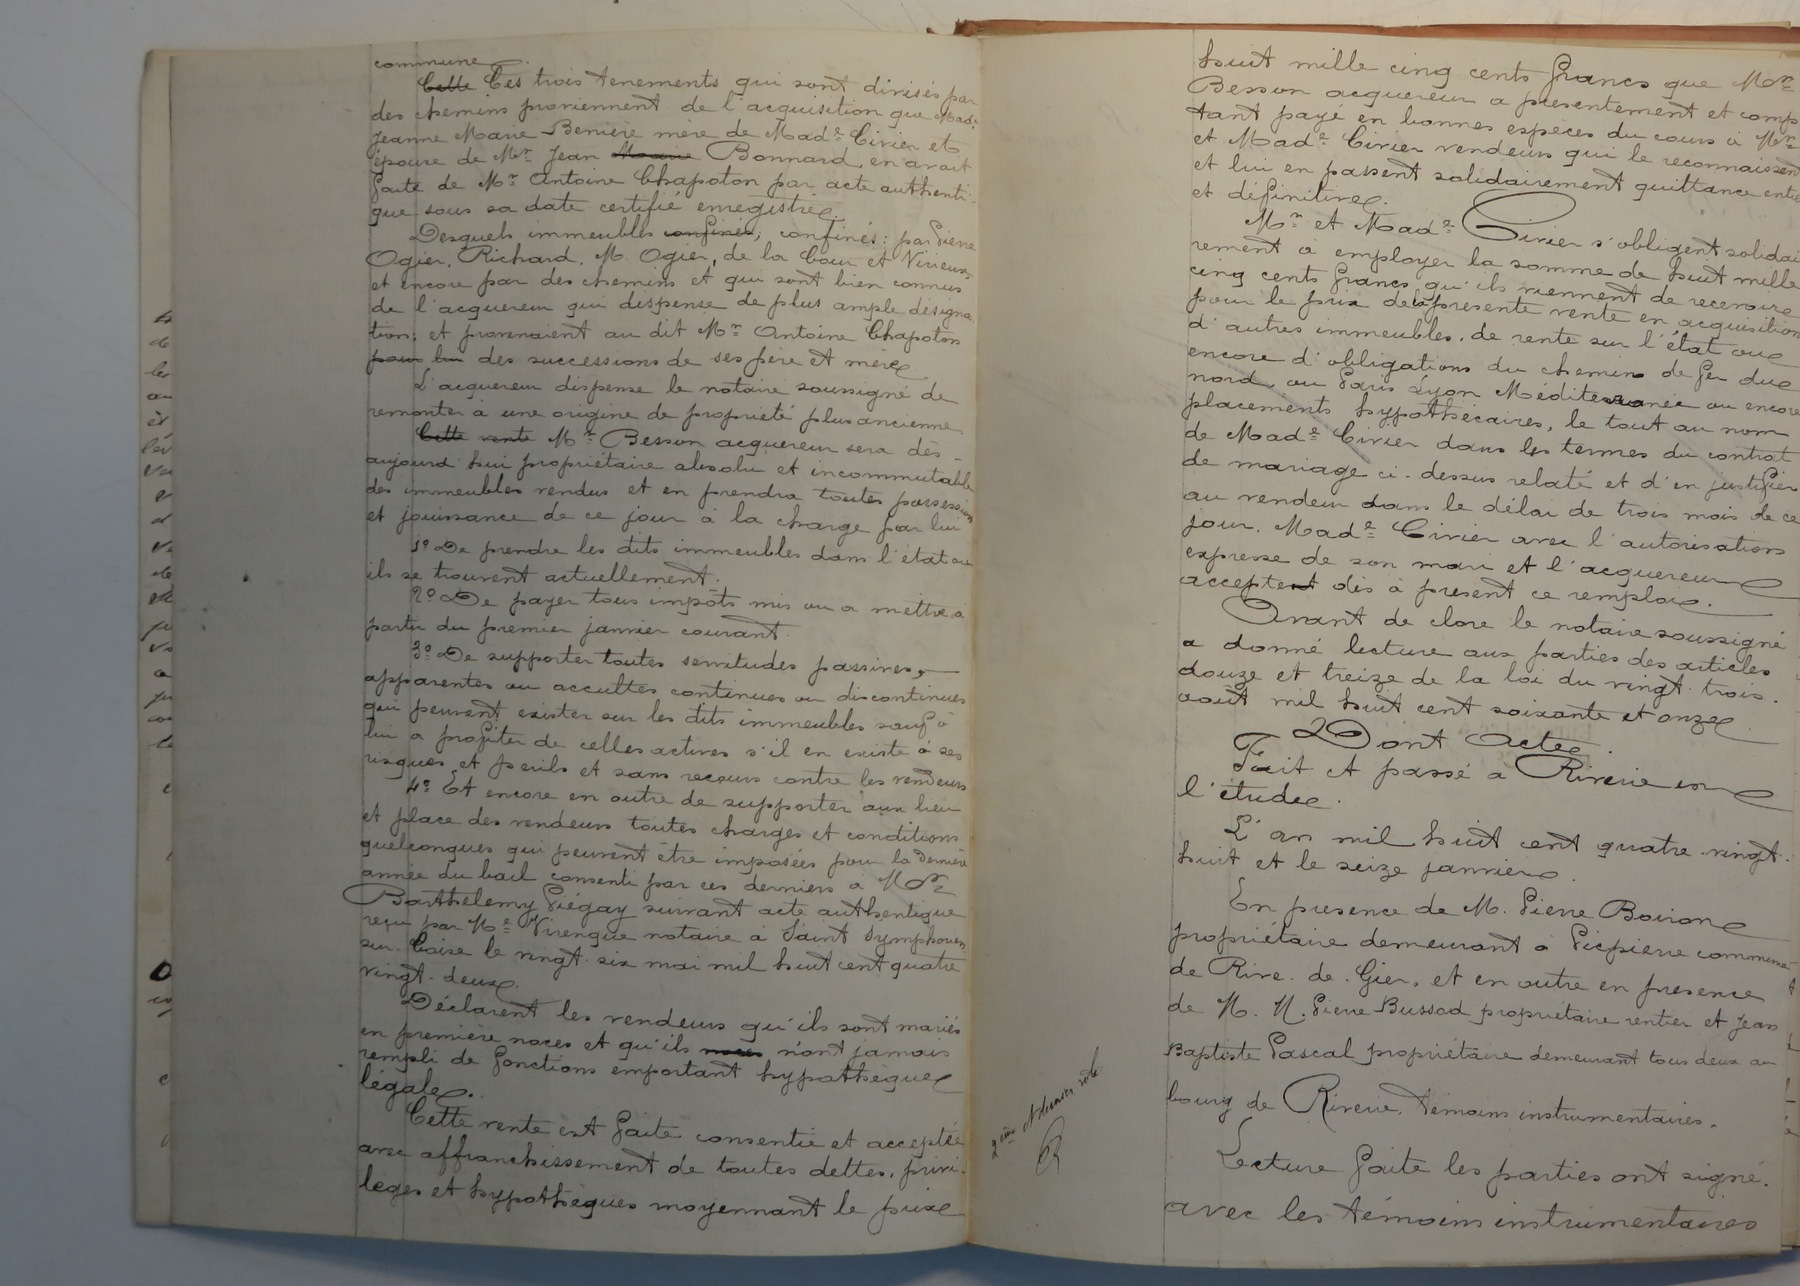 commune.
Cette Ces trois tenements qui sont divisés par
des chemins proviennent de l'acquisition que Made
Jeanne Marie Benière mère de Made Civier et
épouse de Mr Jean Marie Bonnard en avait
faite de Mr Antoine Chapoton par acte authenti-
que sous sa date certifié enregistré.
Desquels immeubles confinés, confinés: par Pierre
Ogier, Richard, M. Ogier, de la Cour et Virieux
et encore par des chemins et qui sont bien connus
de l'acquereur qui dispense de plus ample désigna
tion; et provenaient au dit Mr Antoine Chapoton
pour lui des successions de ses père et mère
L'acquereur dispense le notaire soussigné de
remonter à une origine de propriété plus ancienne
Cette vente Mr Besson acquereur sera dès-
aujourd'hui propriétaire absolu et incommutable
des immeubles vendus et en prendra toutes possession
et jouissance de ce jour à la charge par lui
1o De prendre les dits immeubles dans l'état où
ils se trouvent actuellement.
2o De payer tous impôts mis ou a mettre a
partir du premier janvier courant.
3o De supporter toutes servitudes passives,
apparentes ou occultes continues ou discontinues
qui peuvent exister sur les dits immeubles sauf à
lui a profiter de celles actives s'il en existe à ses
risques et perils et sans recours contre les vendeurs
4o Et encore en outre de supporter aux lieu
et place des vendeurs toutes charges et conditions
quelconques qui peuvent être imposées pour la dernière
année du bail consenti par ces derniers à Mr
Barthelemy Piégay suivant acte authentique
reçu par Me Virengue notaire à Saint Symphorien
sur-Coise le vingt-six mai mil huit cent quatre
vingt-deux.
Déclarent les vendeurs qu'ils sont mariés
en première noces et qu'ils noces n'ont jamais
rempli de fonctions emportant hypothèque
légale.
Cette vente est faite consentie et acceptée
avec affranchissement de toutes dettes, privi-
leges et hypothèques moyennant le prix
2ème et dernier rôle
huit mille cinq cents francs que Mr
Besson acquereur a présentement et comp
tant payé en bonnes espèces du cours à Mr
et Made Civier vendeurs qui le reconnaissent
et lui en passent solidairement quittance entie
et définitive.
Mr et Made Civier s'obligent solidai
rement à employer la somme de huit mille
cinq cents francs qu'ils viennent de recevoir
pour le prix de la présente vente en acquisition
d'autres immeubles, de rente sur l'état ou
encore d'obligations du chemin de fer du
nord, ou Paris Lyon Méditerranée ou encore
placements hypothécaires, le tout au nom
de Made Civier dans les termes du contrat
de mariage ci-dessus relaté et d'en justifier
au vendeur dans le délai de trois mois de ce
jour. Made Civier avec l'autorisation
expresse de son mari et l'acquereur
acceptent dès à présent ce remploi.
Avant de clore le notaire soussigné
a donné lecture aux parties des articles
douze et treize de la loi du vingt-trois
août mil huit cent soixante et onze
Dont Acte.
Fait et passé a Riverie en
l'étude.
L'an mil huit cent quatre-vingt-
huit et le seize janvier.
En presence de M. Pierre Boiron
propriétaire demeurant à Picpierre commune
de Rive-de-Gier, et en outre en presence
de M. M. Pierre Bussod propriétaire rentier et Jean
Baptiste Pascal propriétaire demeurant tous deux au
bourg de Riverie, témoins instrumentaires.
Lecture faite les parties ont signé.
avec les témoins instrumentaires